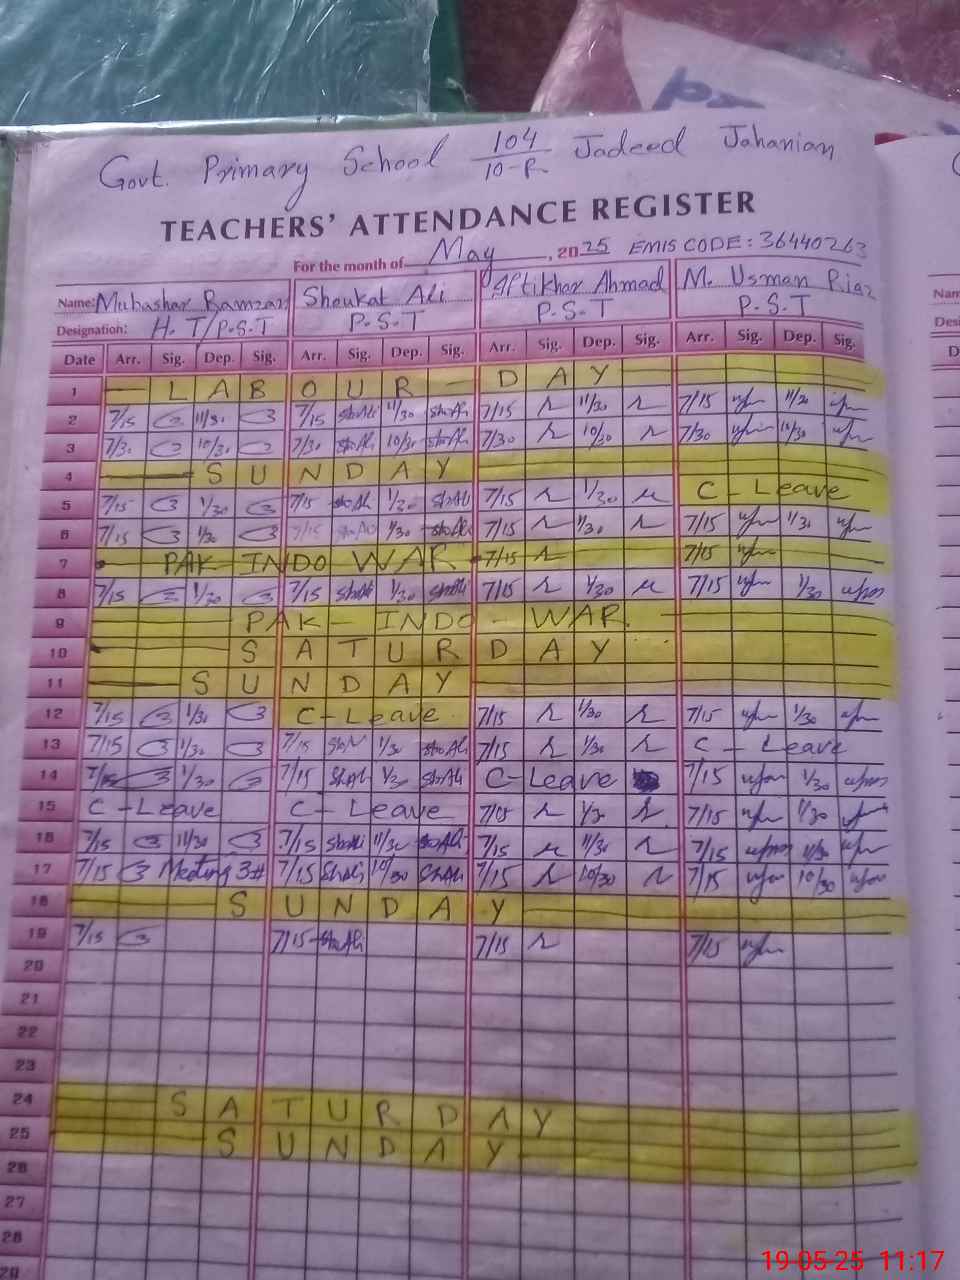 Govt. Primary School 104/10-R Jadeed Jahanian
TEACHERS' ATTENDANCE REGISTER
For the month of May, 2025 EMIS CODE: 36440263
Name: Mubashar Ramzan Shoukat Ali Iftikhar Ahmad M. Usman Riaz
Designation: H.T/P.S.T P.S.T P.S.T P.S.T
Date Arr. Sig. Dep. Sig. Arr. Sig. Dep. Sig. Arr. Sig. Dep. Sig. Arr. Sig. Dep. Sig.
1 LABOUR - DAY
2 7/15 11/30 7/15 ShoAli 11/30 ShoAli 7/15 11/30 7/15 11/30
3 7/30 10/30 7/30 ShoAli 10/30 ShoAli 7/30 10/30 7/30 10/30
4 SUNDAY
5 7/15 1/30 7/15 ShoAli 1/30 ShoAli 7/15 1/30 C-Leave
6 7/15 1/30 7/15 ShoAli 1/30 ShoAli 7/15 1/30 7/15 1/30
7 PAK-INDO WAR 7/15 7/15
8 7/15 1/30 7/15 ShoAli 1/30 ShoAli 7/15 1/30 7/15 1/30
9 PAK-INDO-WAR.
10 SATURDAY
11 SUNDAY
12 7/15 1/30 C-Leave 7/15 1/30 7/15 1/30
13 7/15 1/30 7/15 ShoAli 1/30 ShoAli 7/15 1/30 C-Leave
14 7/15 1/30 7/15 ShoAli 1/30 ShoAli C-Leave 7/15 1/30
15 C-Leave C-Leave 7/15 1/30 7/15 1/30
16 7/15 11/30 7/15 ShoAli 11/30 ShoAli 7/15 11/30 7/15 11/30
17 7/15 Meeting 7/15 ShoAli 10/30 ShoAli 7/15 10/30 7/15 10/30
18 SUNDAY
19 7/15 7/15 ShoAli 7/15 7/15
20
21
22
23
24 SATURDAY
25 SUNDAY
26
27
28
29
19-05-25 11:17